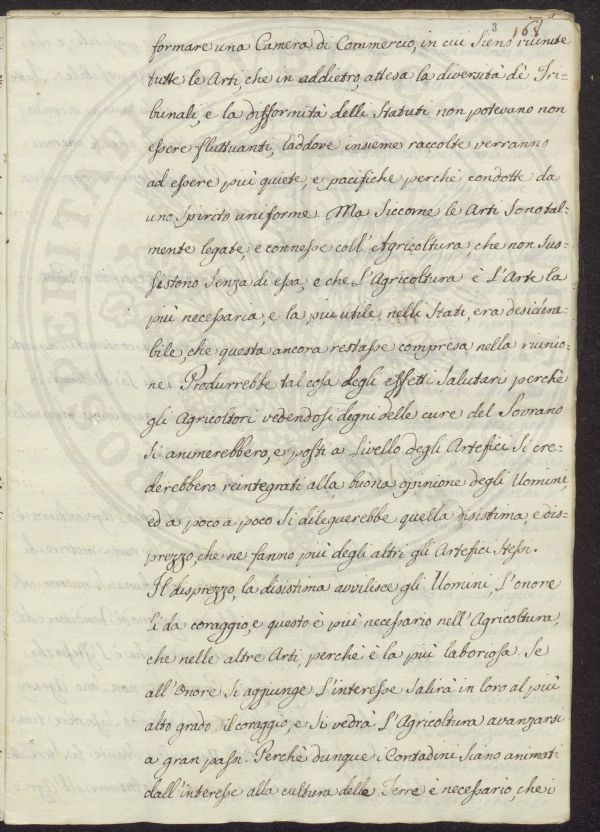 3 168
formare una Camera di Commercio, in cui sieno riunite
tutte le Arti, che in addietro, attesa la diversità de Tri-
bunali, e la difformità delli Statuti non potevano non
essere fluttuanti, laddove insieme raccolte verranno
ad essere più quiete, e pacifiche perchè condotte da
uno spirito uniforme. Ma siccome le Arti sono tal-
mente legate, e connesse coll' Agricoltura, che non sus-
sistono senza di essa, e che l'Agricoltura è l'Arte la
più necessaria, e la più utile nelli Stati, era desidera-
bile, che questa ancora restasse compresa nella riunio-
ne. Produrrebbe tal cosa degli effetti salutari perchè
gli Agricoltori vedendosi degni delle cure del Sovrano
si animerebbero, e posti a livello degli Artefici si cre-
derebbero reintegrati alla buona opinione degli Uomini,
ed a poco a poco si dileguerebbe quella disistima, e dis-
prezzo, che ne fanno più degli altri gli Artefici stessi.
Il disprezzo, la disistima avvilisce gli Uomini, l'onore
li da coraggio, e questo è più necessario nell'Agricoltura,
che nelle altre Arti, perchè è la più laboriosa. Se
all'Onore si aggiunge l'interesse salirà in loro al più
alto grado il coraggio, e si vedrà l'Agricoltura avanzarsi
a gran passi. Perchè dunque i Contadini siano animati
dall'interesse alla cultura delle Terre è necessario, che i